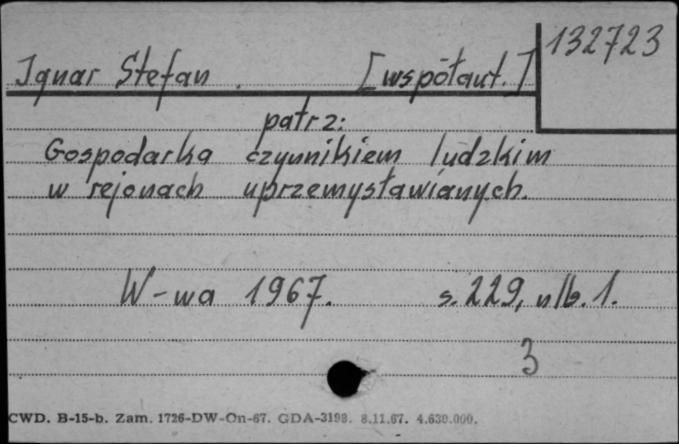 132723
Ignar Stefan . [współaut.]
patrz:
Gospodarka czynnikiem ludzkim
w rejonach uprzemysławianych.
W-wa 1967. s. 229, nlb. 1.
3
CWD. B-15-b. Zam. 1726-DW-On-67. GDA-3198. 8.11.67. 4.630.000.